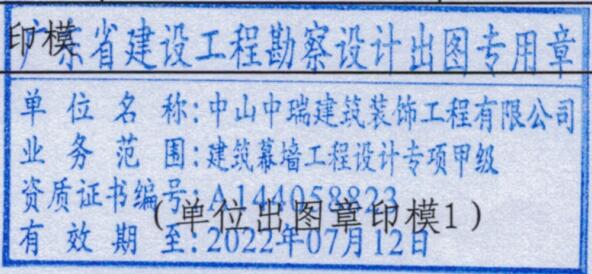 印模
广东省建设工程勘察设计出图专用章
单位名称:中山中瑞建筑装饰工程有限公司
业务范围:建筑幕墙工程设计专项甲级
资质证书编号:A144058823
(单位出图章印模1)
有效期至:2022年07月12日